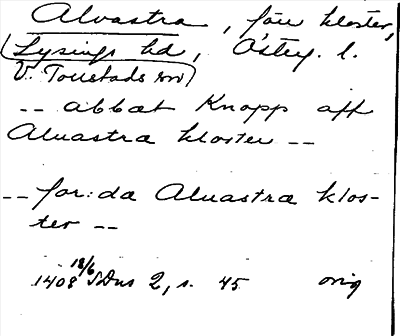 Alvastra, förv kloster,
(Lysings hd, Österg. l.
V. Toustads sn)
-- abbat Knopp aff
Aluastra kloster --
-- for:da Aluastra klos-
ter --
1408 18/6 SDns 2, s. 45 orig